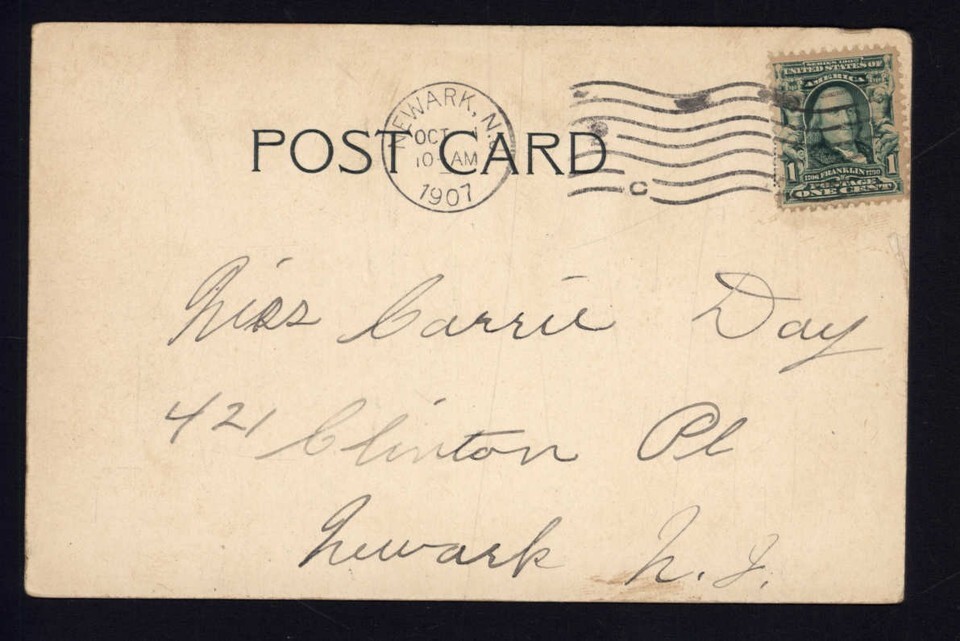 POST CARD
NEWARK, N.J.
OCT 1
10 AM
1907
C
SERIES 1902
UNITED STATES OF
AMERICA
1 1
1706 FRANKLIN 1790
POSTAGE
ONE CENT
Miss Carrie Day
421 Clinton Pl
Newark N.J.